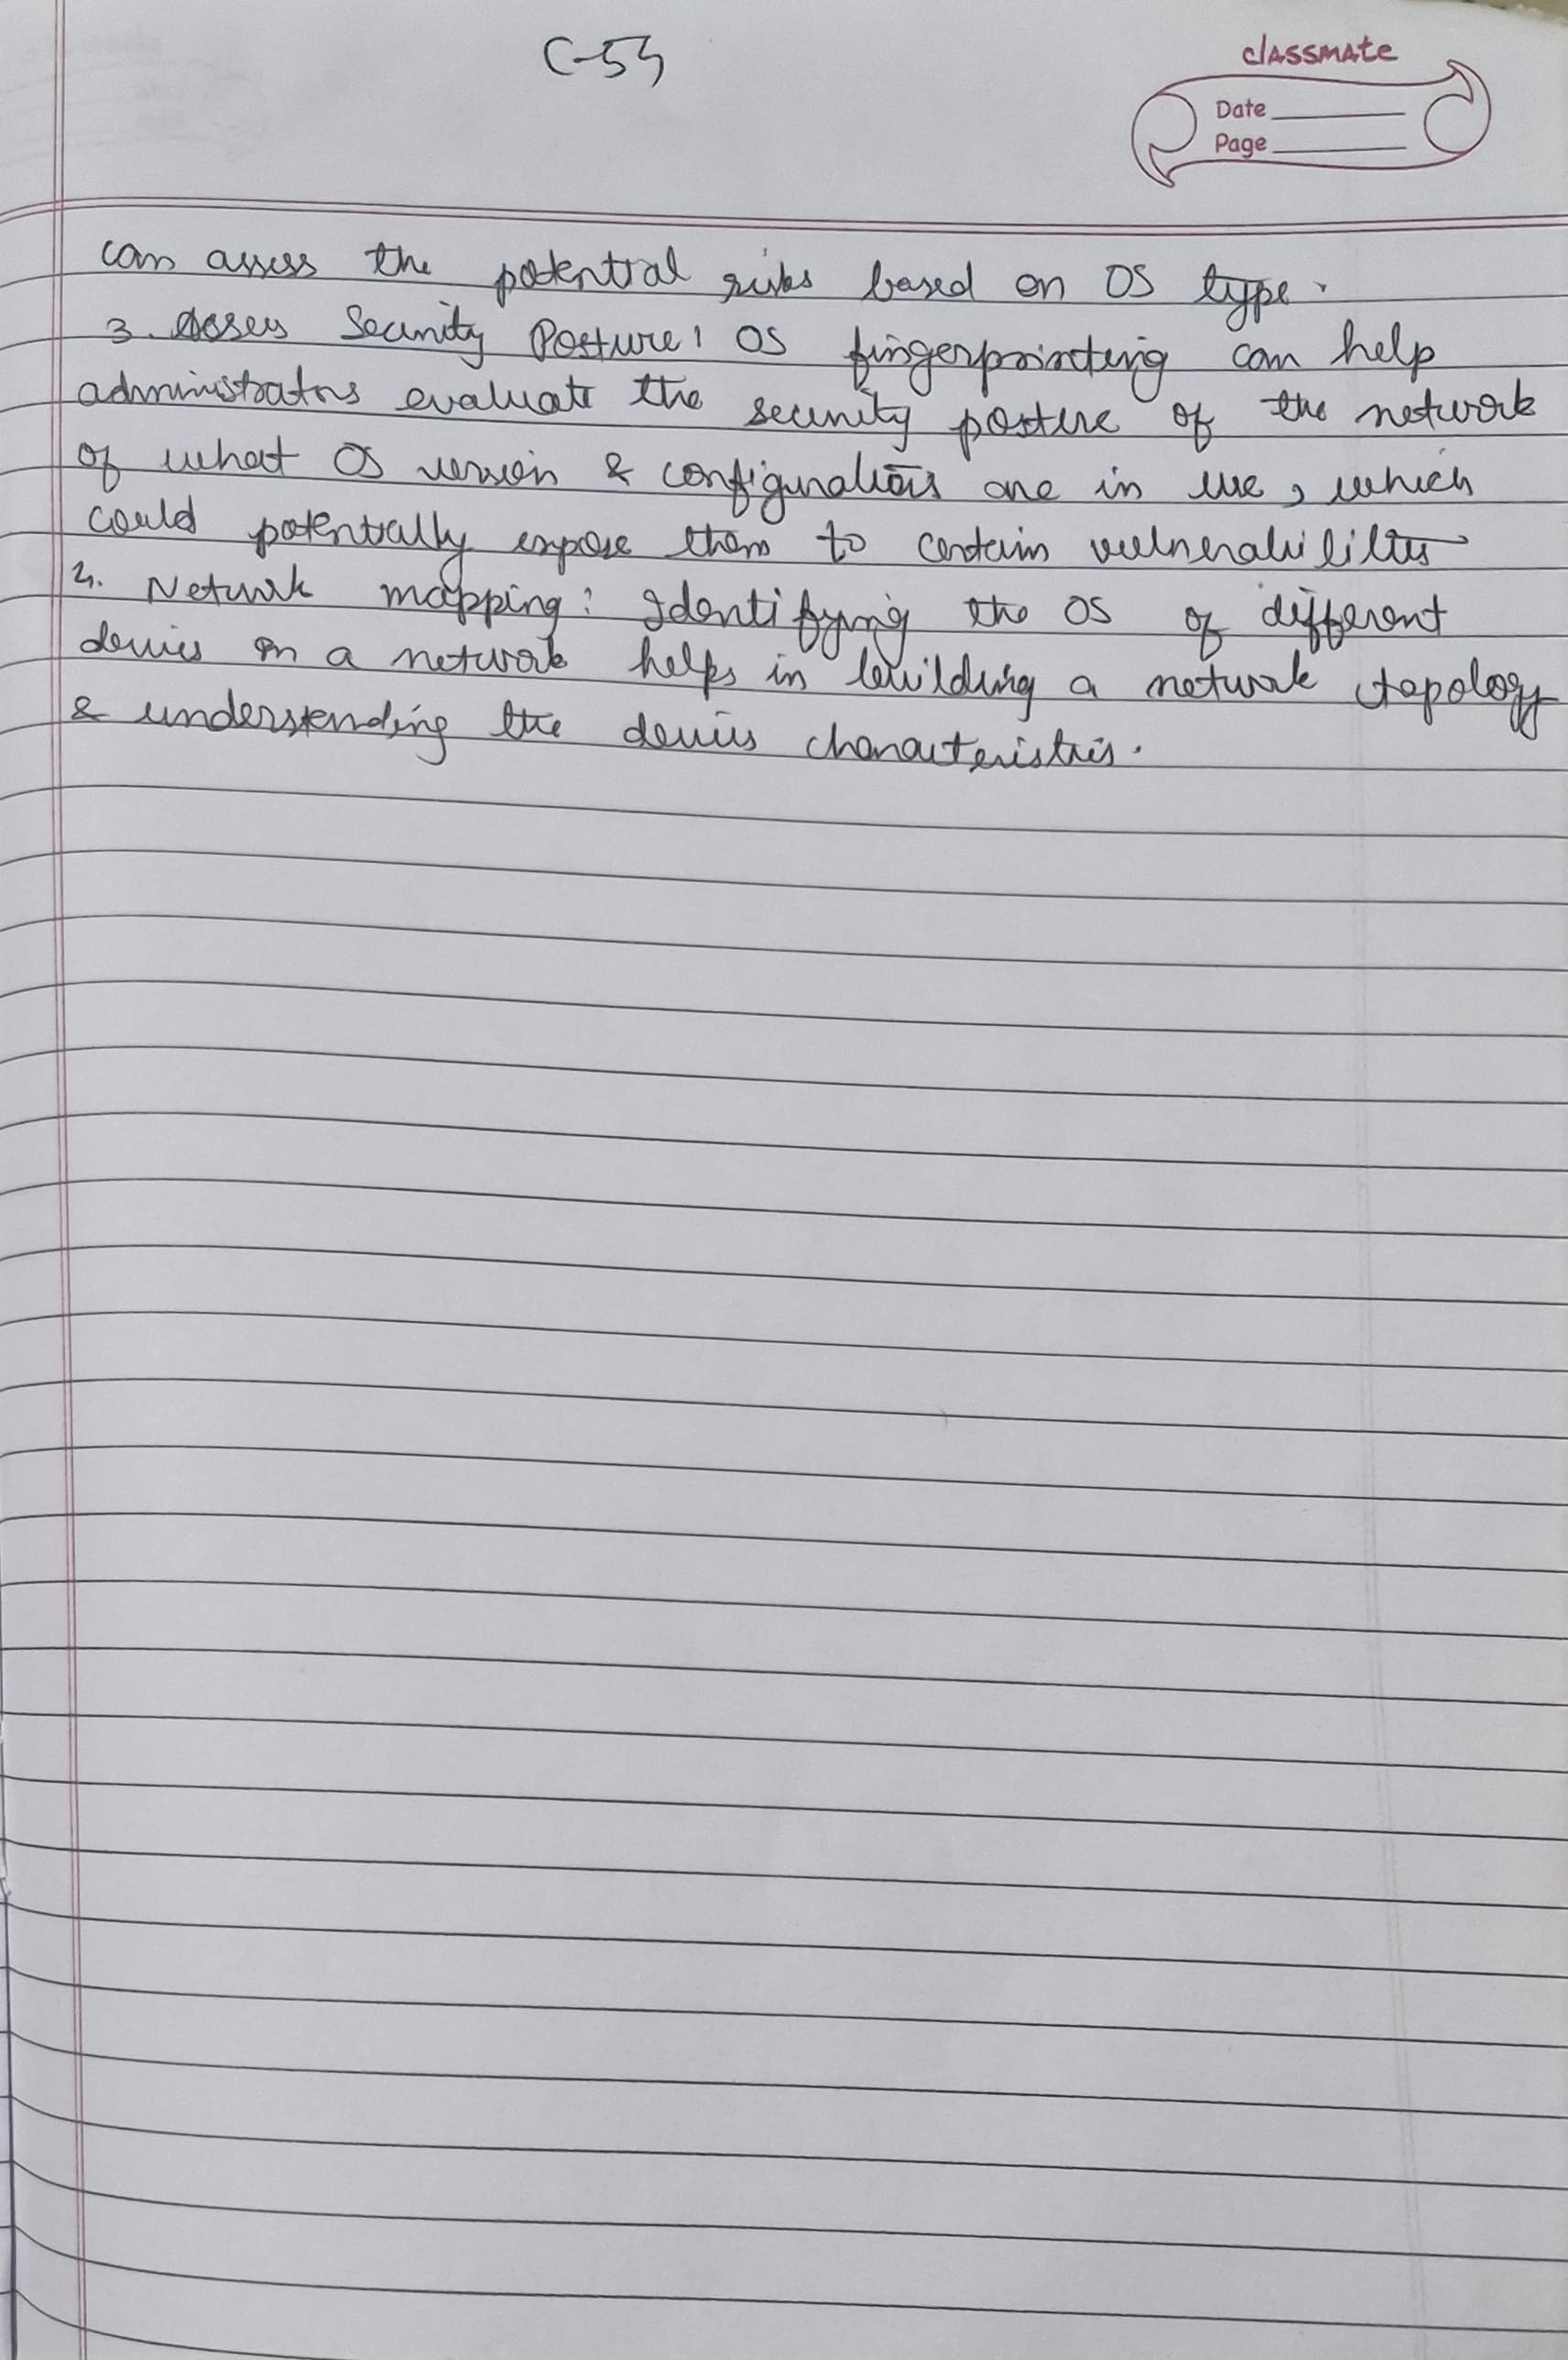 C-54
classmate
Date
Page
can assess the potential risks based on OS type.
3. Asses Security Posture: OS fingerprinting can help
administrators evaluate the security posture of the network
of what OS version & configurations are in use, which
could potentially expose them to certain vulnerabilities
4. Network mapping: Identifying the OS of different
devies on a network helps in building a network topology
& understending the devies charaucteristics.